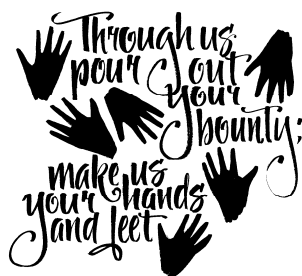 Through us
pour out
your
bounty;
make us
your hands
and feet